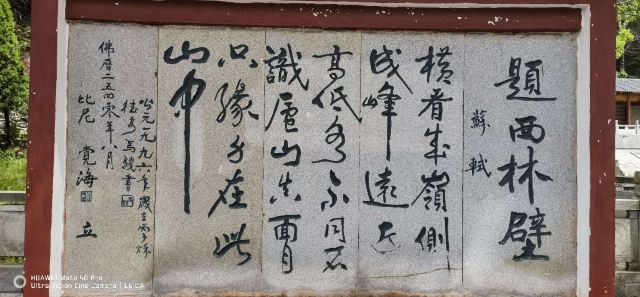 題西林壁
蘇軾
橫看成嶺側
成峰遠近
高低各不同不
識廬山真面目
只緣身在此
山中
公元一九九六年歲丙子秋
馬書
佛曆二五四〇年八月
比尼 覺海 立
HUAWEI Mate 40 Pro
Ultra Vision Cine Camera | LEICA